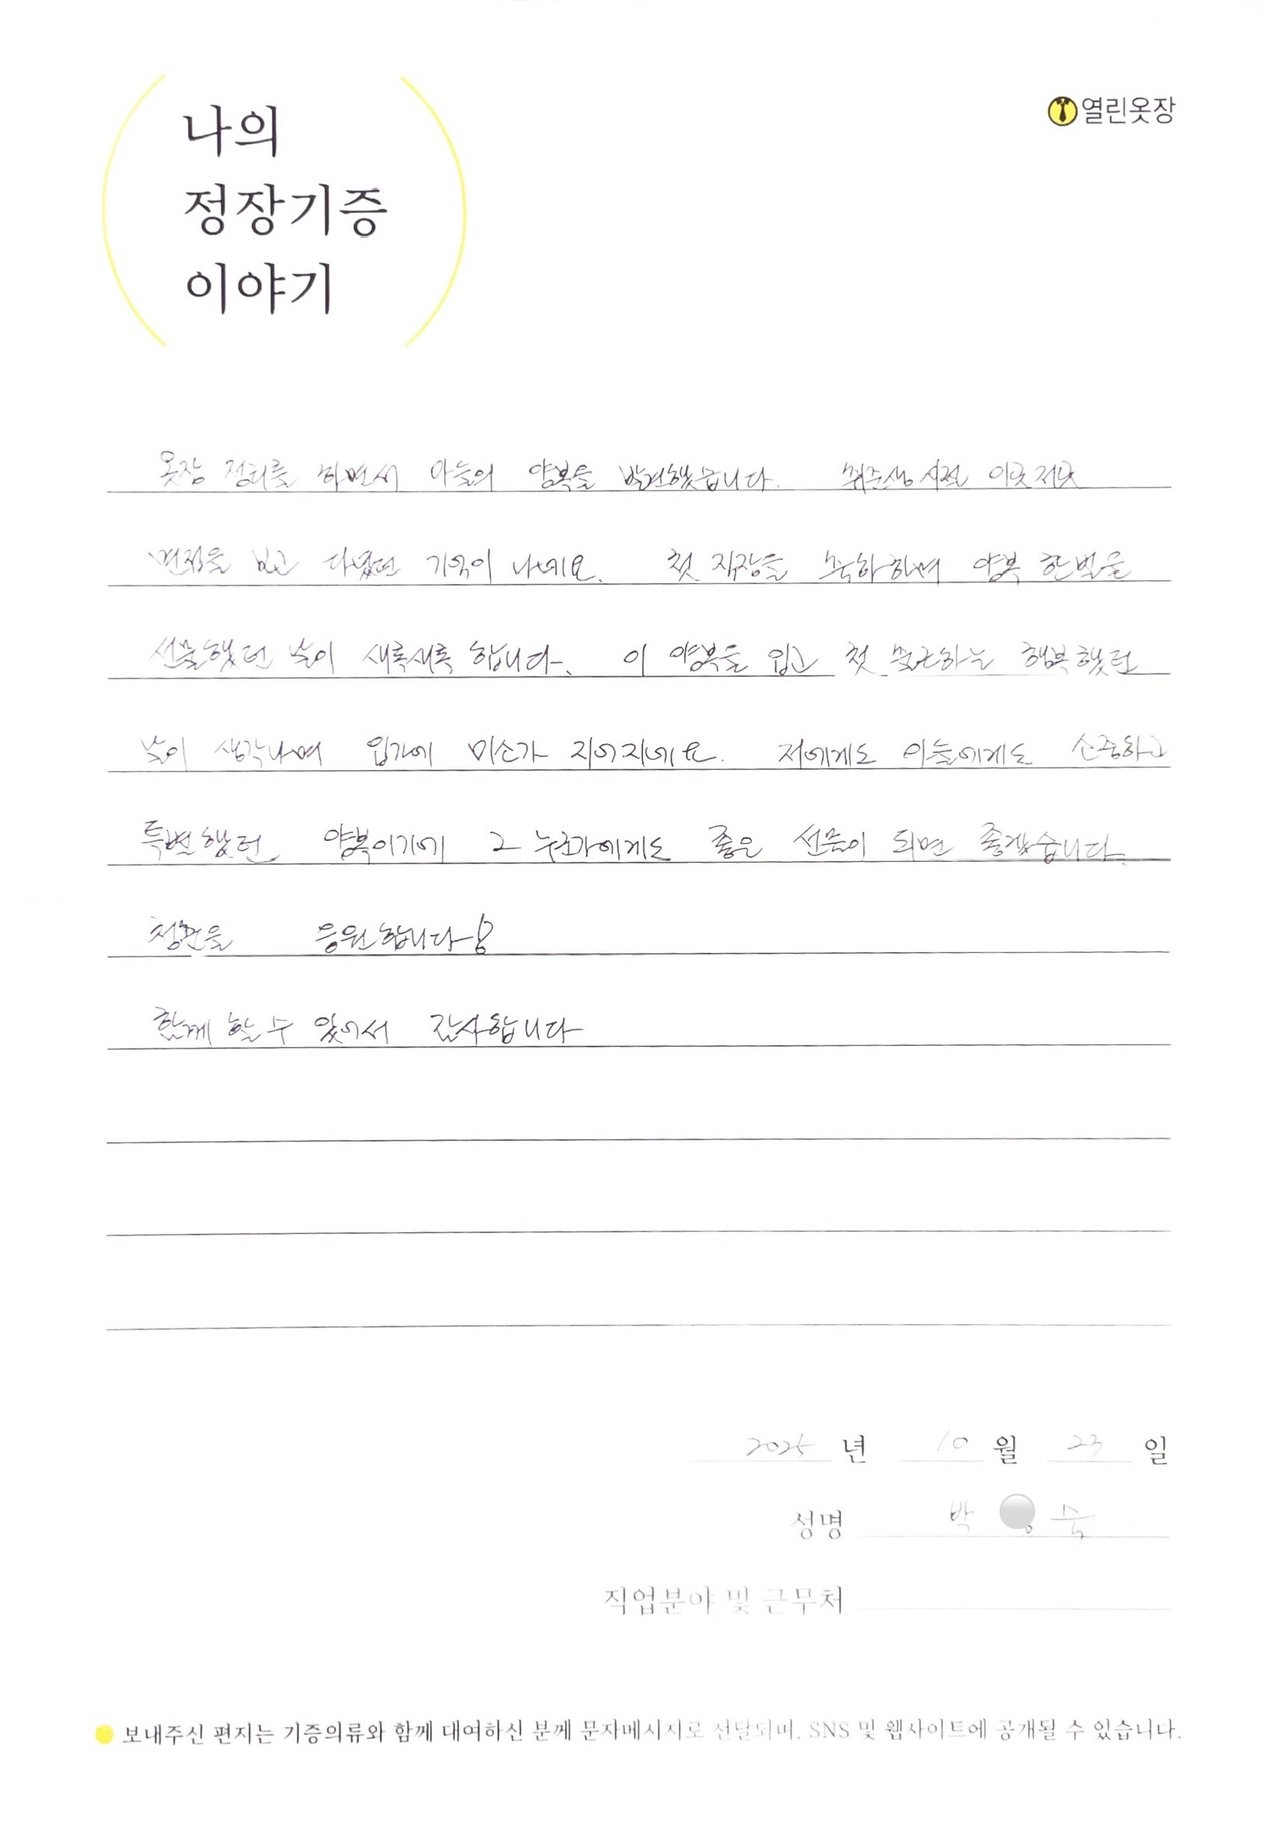 나의
정장기증
이야기
열린옷장
옷장 정리를 하면서 아들의 양복을 발견했습니다. 취준생 시절 이곳저곳
면접을 보고 다녔던 기억이 나네요. 첫 직장을 축하하며 양복 한벌을
선물했던 날이 새록새록 합니다. 이 양복을 입고 첫 출근하는 행복했던
날이 생각나며 입가에 미소가 지어지네요. 저에게도 아들에게도 소중하고
특별했던 양복이기에 그 누군가에게도 좋은 선물이 되면 좋겠습니다.
청년을 응원합니다!
함께 할 수 있어서 감사합니다
2025 년 10 월 23 일
성명 박 숙
직업분야 및 근무처
보내주신 편지는 기증의류와 함께 대여하신 분께 문자메시지로 전달되며, SNS 및 웹사이트에 공개될 수 있습니다.